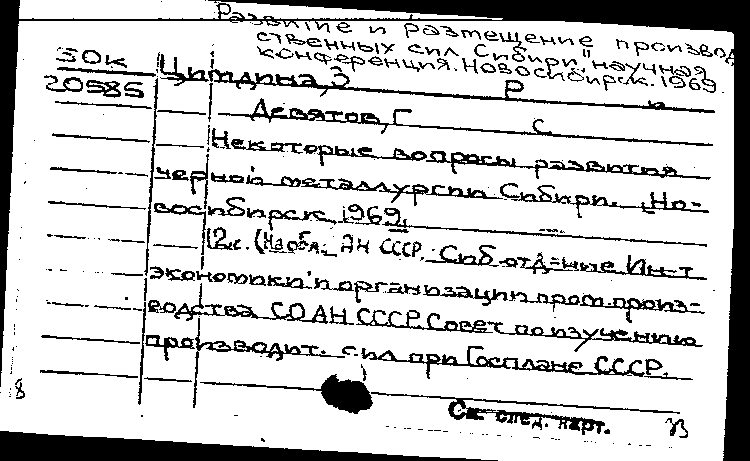 Развитие и размещение производ
ственных сил Сибири," научная
конференция. Новосибирск. 1969.
30к
20585
Цимдина, З Р
Девятов, Г С.
Некоторые вопросы развития
черной металлургии Сибири. Но-
восибирск, 1969.
12с. (На обл.: АН СССР. Сиб отд-ние Ин-т
экономики и организации пром. произ-
водства СО АН СССР. Совет по изучению
производит. сил при Госплане СССР.
См. след. карт.
8